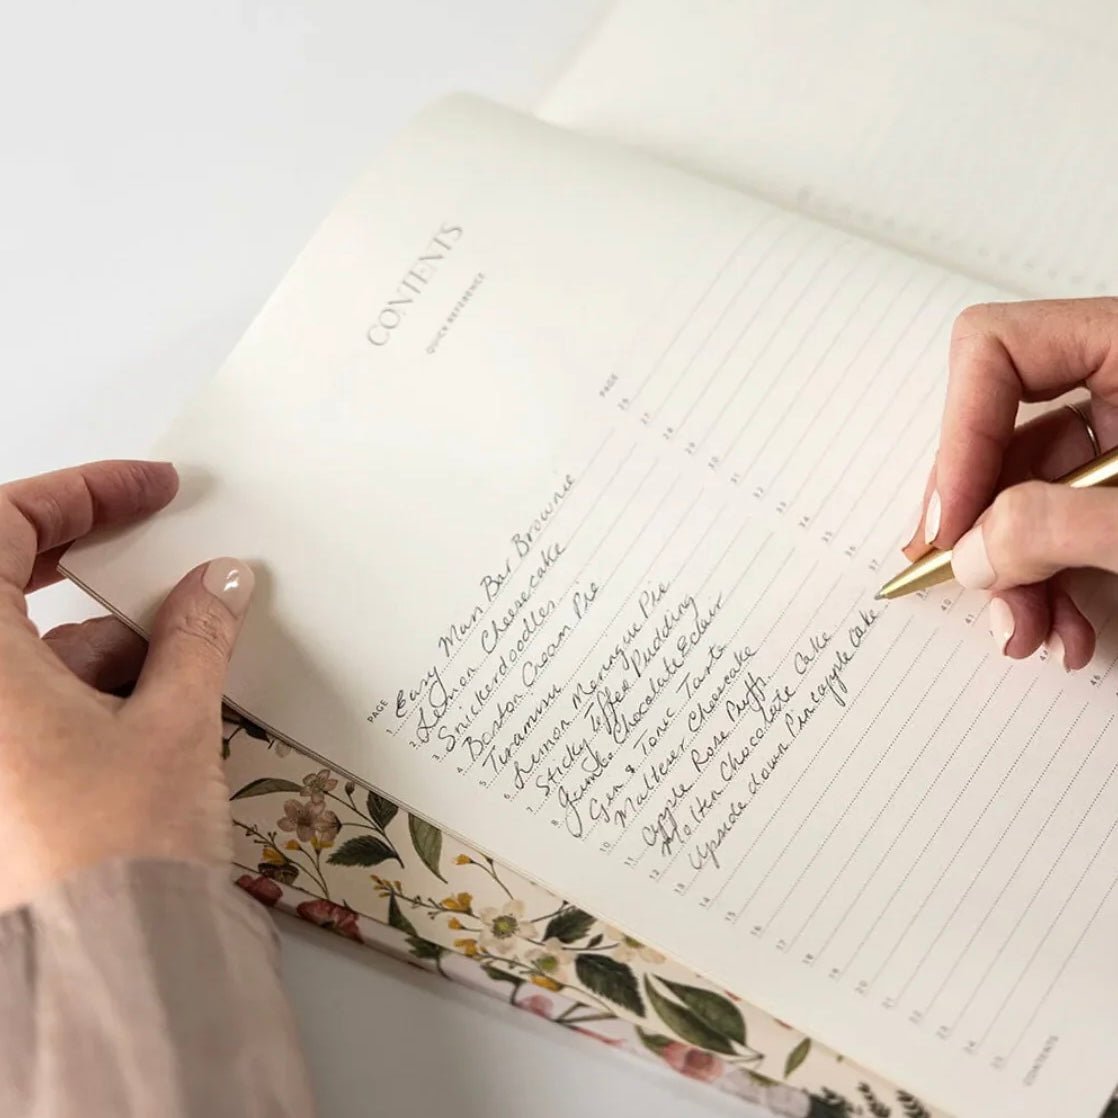 CONTENTS
QUICK REFERENCE
PAGE
1. Easy Mars Bar Brownie
2. Lemon Cheesecake
3. Snickerdoodles
4. Boston Cream Pie
5. Tiramisu
6. Lemon Meringue Pie
Sticky Toffee Pudding
8. Jumbo Chocolate Eclair
Gin & Tonic Tarte
10. Malteser Cheesecake
11. Apple Rose Puffs
12. Molten Chocolate Cake
13. Upside down Pineapple Cake
14
15
16
17
18
19
20
21
22
23
24
25
PAGE
26
27
28
29
30
31
32
33
34
35
36
37
40
41
46
CONTENTS